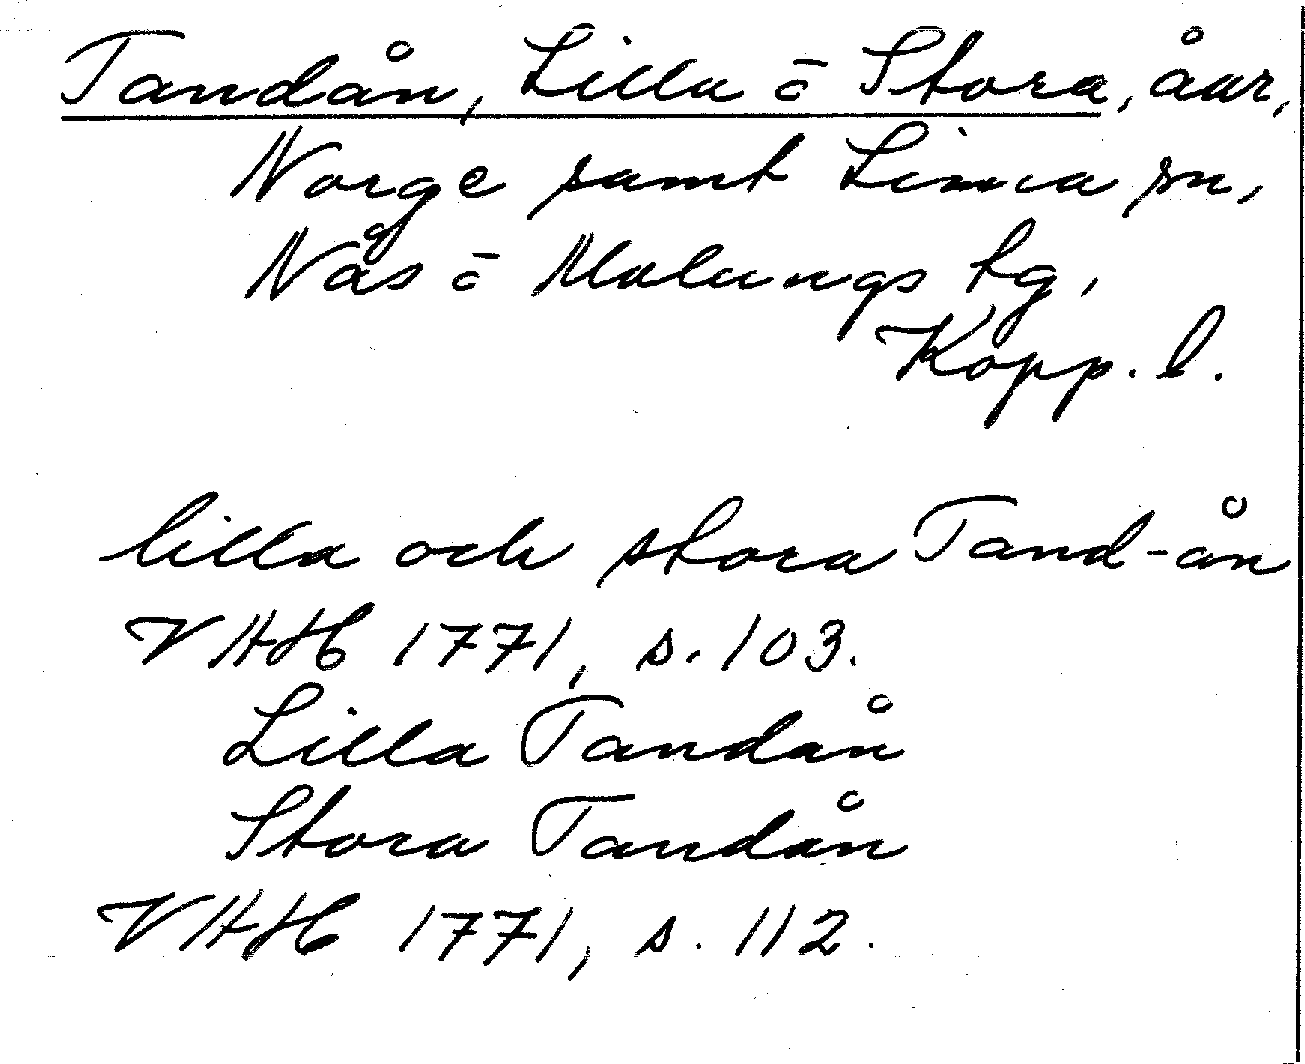 Tandån, Lilla o̅ Stora, åar,
Norge samt Lima sn,
Nås o̅ Malungs tg,
Kopp. l.
lilla och stora Tand-ån
VHAH 1771, s. 103.
Lilla Tandån
Stora Tandån
VHAH 1771, s. 112.